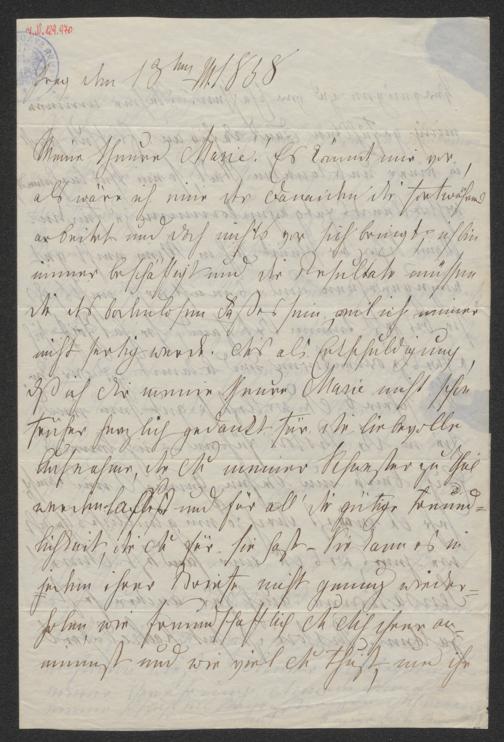 Prag den 13ten 1858
Meine theure Marie. Es kömmt mir vor,
als wäre ich eine der Danaiden die fortwährend
arbeitet und doch nichts vor sich bringt, ich bin
immer beschäftigt und die Resultate müssen
die des bodenlosen Faßes sein, weil ich immer
nicht fertig werde. Dies als Entschuldigung,
daß ich Dir meine theure Marie nicht schon
früher herzlich gedankt für die liebevolle
Aufnahme, die Du meiner Schwester zu Theil
werden laßest und für all' die gütige Freund-
lichkeit, die Du für Sie hast - Sie kann es in
jedem ihrer Briefe nicht genug wieder-
holen, wie freundschaftlich Du Dich ihrer an-
nimmst und wie viel Du thust, um ihr